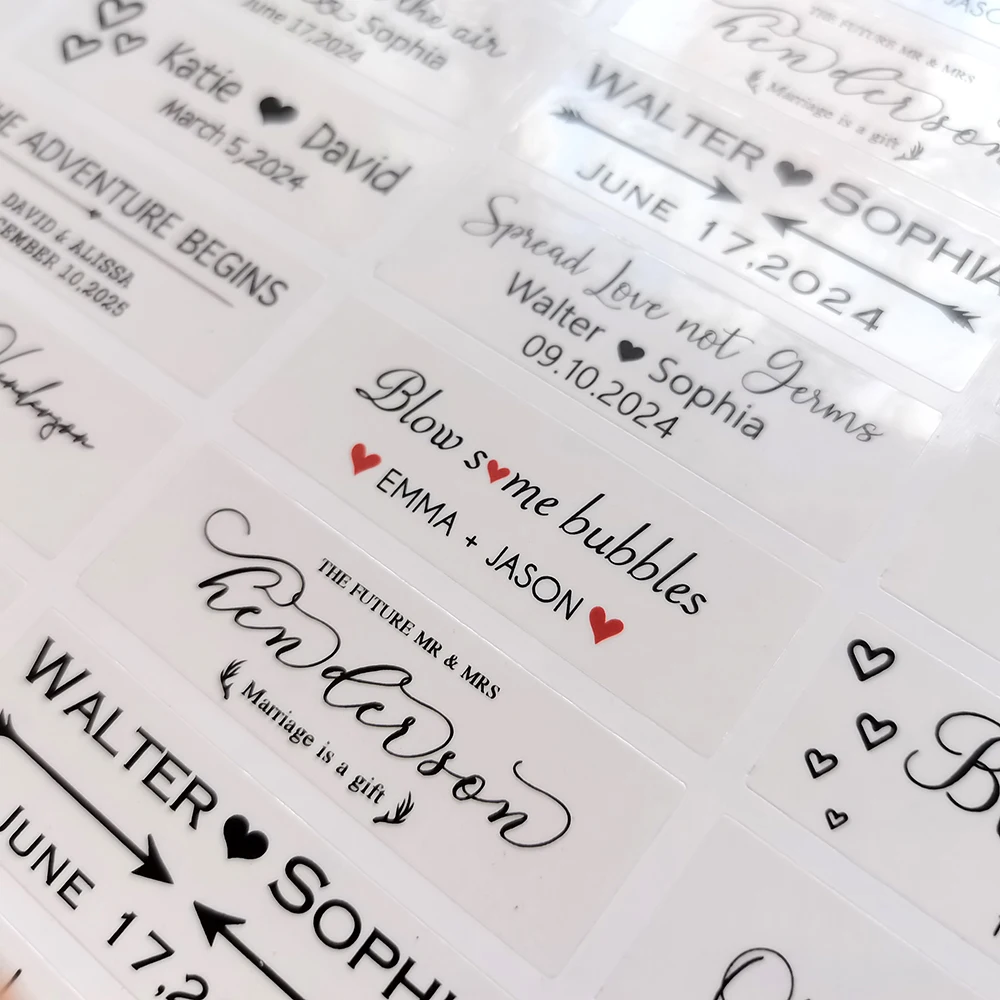 the air
Sophia
June 17,2024
Katie ♥ David
March 5,2024
THE ADVENTURE BEGINS
DAVID & ALISSA
DECEMBER 10.2025
Henderson
JASON
THE FUTURE MR & MRS
henderson
Marriage is a gift
WALTER ♥ SOPHIA
JUNE 17,2024
Spread Love not Germs
Walter ♥ Sophia
09.10.2024
Blow some bubbles
♥ EMMA + JASON ♥
THE FUTURE MR & MRS
henderson
Marriage is a gift
WALTER ♥ SOPHI
JUNE 17,2